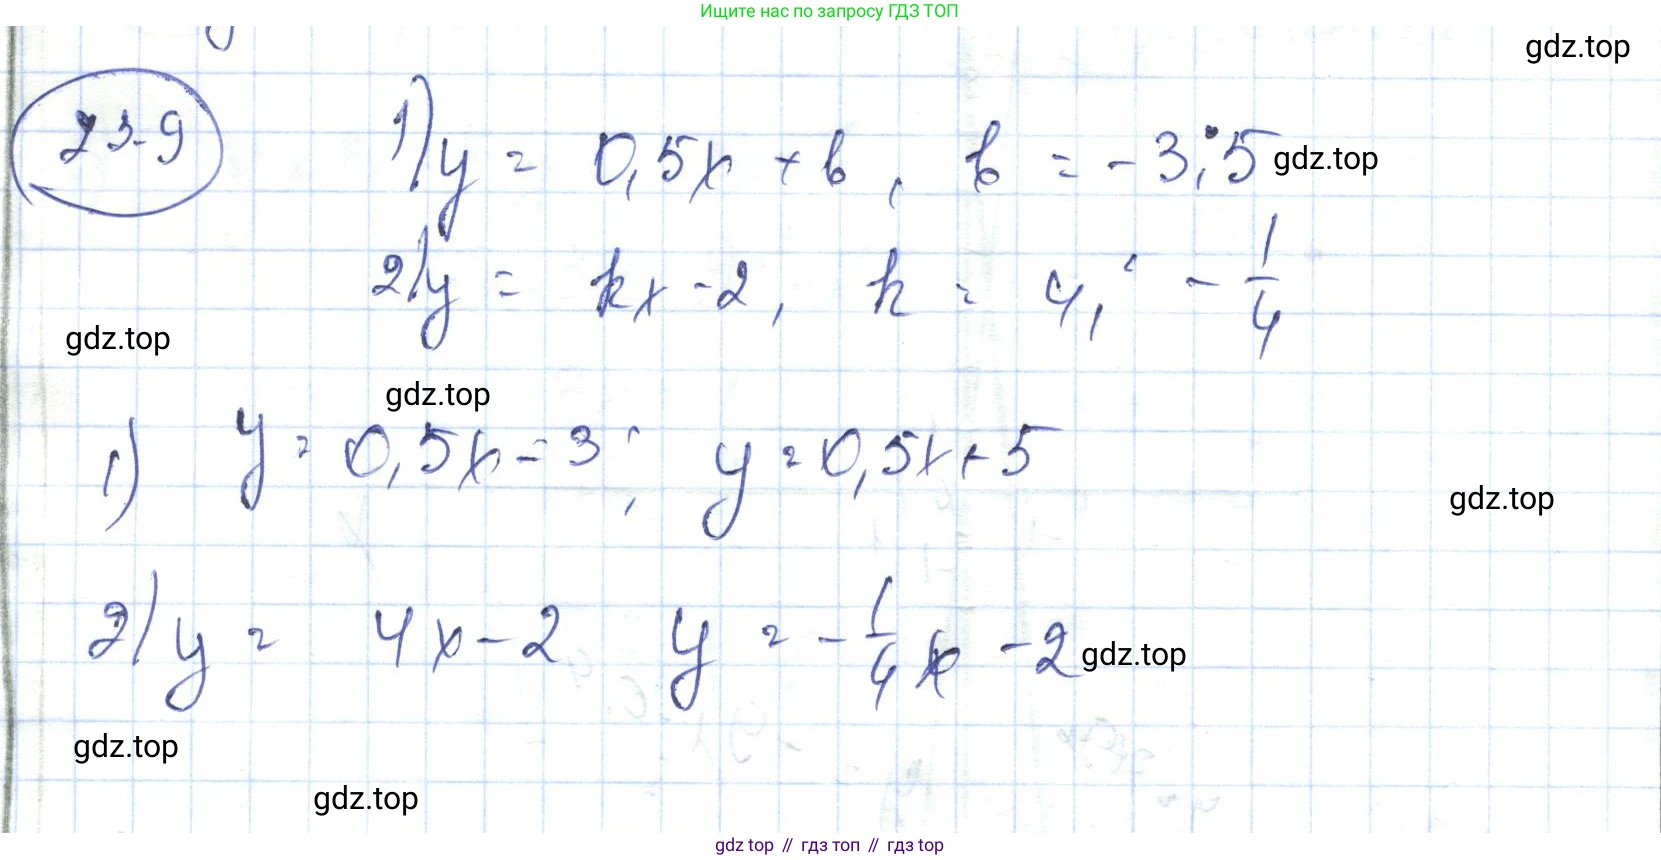 Ищите нас по запросу ГДЗ ТОП
gdz.top
23.9 1) y = 0,5x + b, b = -3; 5 gdz.top
2) y = kx - 2, k = 4; - 1/4
gdz.top
gdz.top
1) y = 0,5x - 3; y = 0,5x + 5
gdz.top
2) y = 4x - 2 y = - 1/4 x - 2 gdz.top
gdz.top
gdz.top
gdz top // гдз топ // гдз top